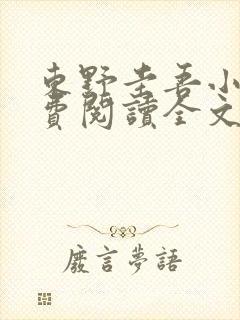 東野圭吾小
費閱讀全文
廢言夢語